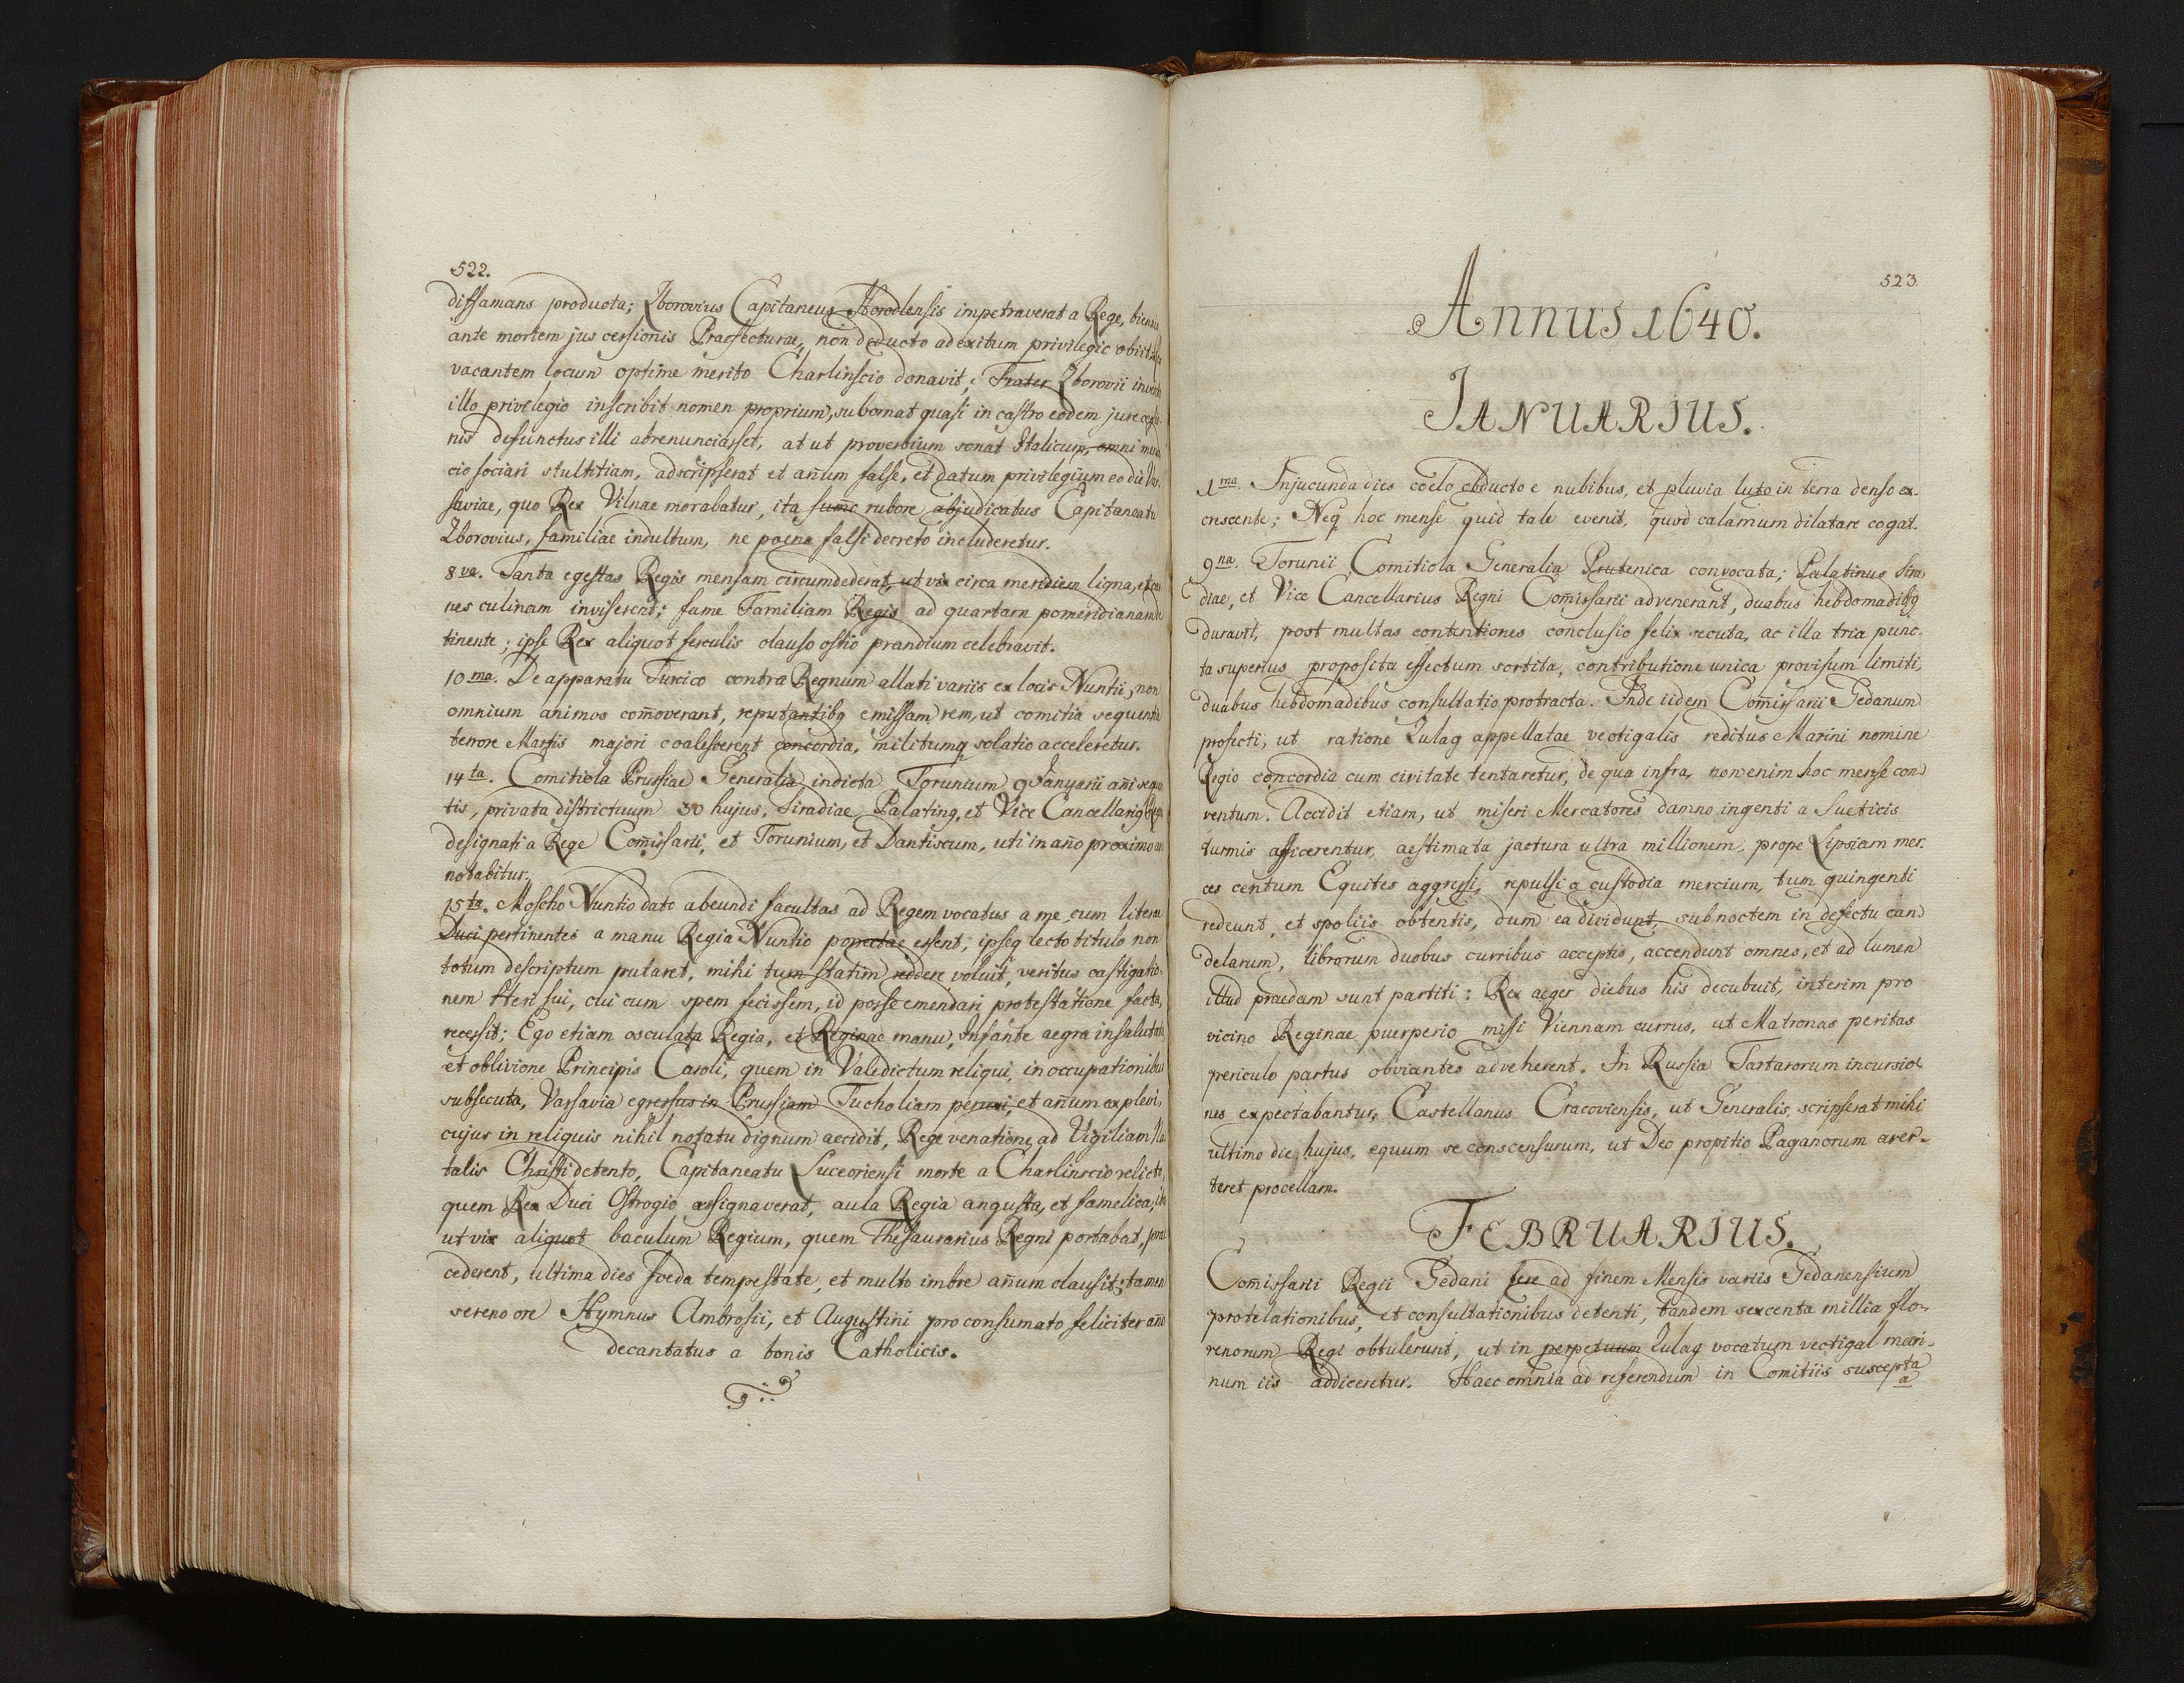 522.
diffamans producta; Zborovius Capitaneus Horodlensis impetraverat a Rege,
ante mortem jus cessionis Praefecturae, non deducto ad exitum privilegio obiit
vacantem locum optime merito Charlinscio donavit; Frater Zborovii
illo privilegio inscribit nomen proprium, subornat quasi in castro eodem jure
nis defunctus illi abrenunciasset, at ut proverbium sonat Italicum, omni
cio sociari stultitiam, adscripserat et añum false, et datum privilegium eo die
saviae, quo Rex Vilnae morabatur, ita rubore abjudicatus Capitaneatu
Zborovius, familiae indultum, ne poena falsi decreto includeretur.
8va. Tanta egestas Regis mensam circumdederat, ut vix circa meridiem ligna, et
nes culinam inviserent; fame Familiam Regis ad quartam pomeridianam
tinente; ipse Rex aliquot ferculis clauso ostio prandium celebravit.
10ma. De apparatu Turcico contra Regnum allati variis ex locis Nuntii, non
omnium animos com̃overant, reputantibq emissam rem, ut comitia sequentia
terrore Martis majori coalescerent concordia, militumq solatio acceleretur.
14ta. Comitiola Prussiae Generalia indicta Torunium 9 Januarii añi
tis, privata districtuum 30 hujus. Siradiae Palatinq, et Vice Cancellariq
designati a Rege Com̃issarii, et Torunium, et Dantiscum, uti in año proximo
notabitur.
15ta. Moscho Nuntio dato abeundi facultas ad Regem vocatus a me, cum literae
Duci pertinentes a manu Regia Nuntio porrectae essent; ipseq lecto titulo non
totum descriptum putaret, mihi tum statim reddere voluit, veritus castigatio-
nem Heri sui, cui cum spem fecissem, id posse emendari protestatione facta,
recessit; Ego etiam osculata Regia, et Reginae manu, Infante aegra insalutata,
et oblivione Principis Caroli, quem in Valedictum reliqui, in occupationibus
subsecuta, Varsavia egressus in Prussiam Tucholiam perrexi, et añum explevi,
cujus in reliquis nihil notatu dignum accidit, Rege venatione ad Vigiliam Na
talis Christi detento, Capitaneatu Luceoriensi morte a Charlinscio relicto,
quem Rex Duci Ostrogio assignaverat, aula Regia angusta, et famelica, ita
ut vix aliquot baculum Regium, quem Thesaurarius Regni portabat, prae
cederent, ultima dies foeda tempestate, et multo imbre añum clausit; tamen
sereno ore Hymnus Ambrosii, et Augustini pro consumato feliciter año
decantatus a bonis Catholicis.
523.
Annus 1640.
JANUARIUS.
1ma. Injucunda dies coelo obducto e nubibus, et pluvia luto in terra denso ex-
crescente; Neq hoc mense quid tale evenit, quod calamum dilatare cogat.
9na. Torunii Comitiola Generalia Prutenica convocata; Palatinus Sira
diae, et Vice Cancellarius Regni Com̃issarii advenerant, duabus hebdomadibq
duravit, post multas contentiones conclusio felix secuta, ac illa tria punc-
ta superius proposita effectum sortita, contributione unica provisum limiti,
duabus hebdomadibus consultatio protracta. Inde iidem Com̃issarii Gedanum
profecti, ut ratione Zulag appellatae vectigalis reditus Marini nomine
Regio concordia cum civitate tentaretur, de qua infra, non enim hoc mense con
ventum. Accidit etiam, ut miseri Mercatores damno ingenti a Sueticis
turmis afficerentur, aestimata jactura ultra millionem, prope Lipsiam mer-
ces centum Equites aggressi, repulsi a custodia mercium, tum quingenti
redeunt, et spoliis obtentis, dum ea dividunt, sub noctem in defectu can
delarum, librorum duobus curribus acceptis, accendunt omnes, et ad lumen
illud praedam sunt partiti: Rex aeger diebus his decubuit, interim pro
vicino Reginae puerperio missi Viennam currus, ut Matronas peritas
periculo partus obviantes adveherent. In Russia Tartarorum incursio-
nes expectabantur, Castellanus Cracoviensis, ut Generalis, scripserat mihi
ultimo die hujus, equum se conscensurum, ut Deo propitio Paganorum aver-
teret procellam.
FEBRUARIUS.
Com̃issarii Regii Gedani fere ad finem Mensis variis Gedanensium
protelationibus, et consultationibus detenti, tandem sexcenta millia flo-
renorum Regi obtulerunt, ut in perpetuum Zulag vocatum vectigal mari-
num iis addiceretur. Haec omnia ad referendum in Comitiis suscepta
a